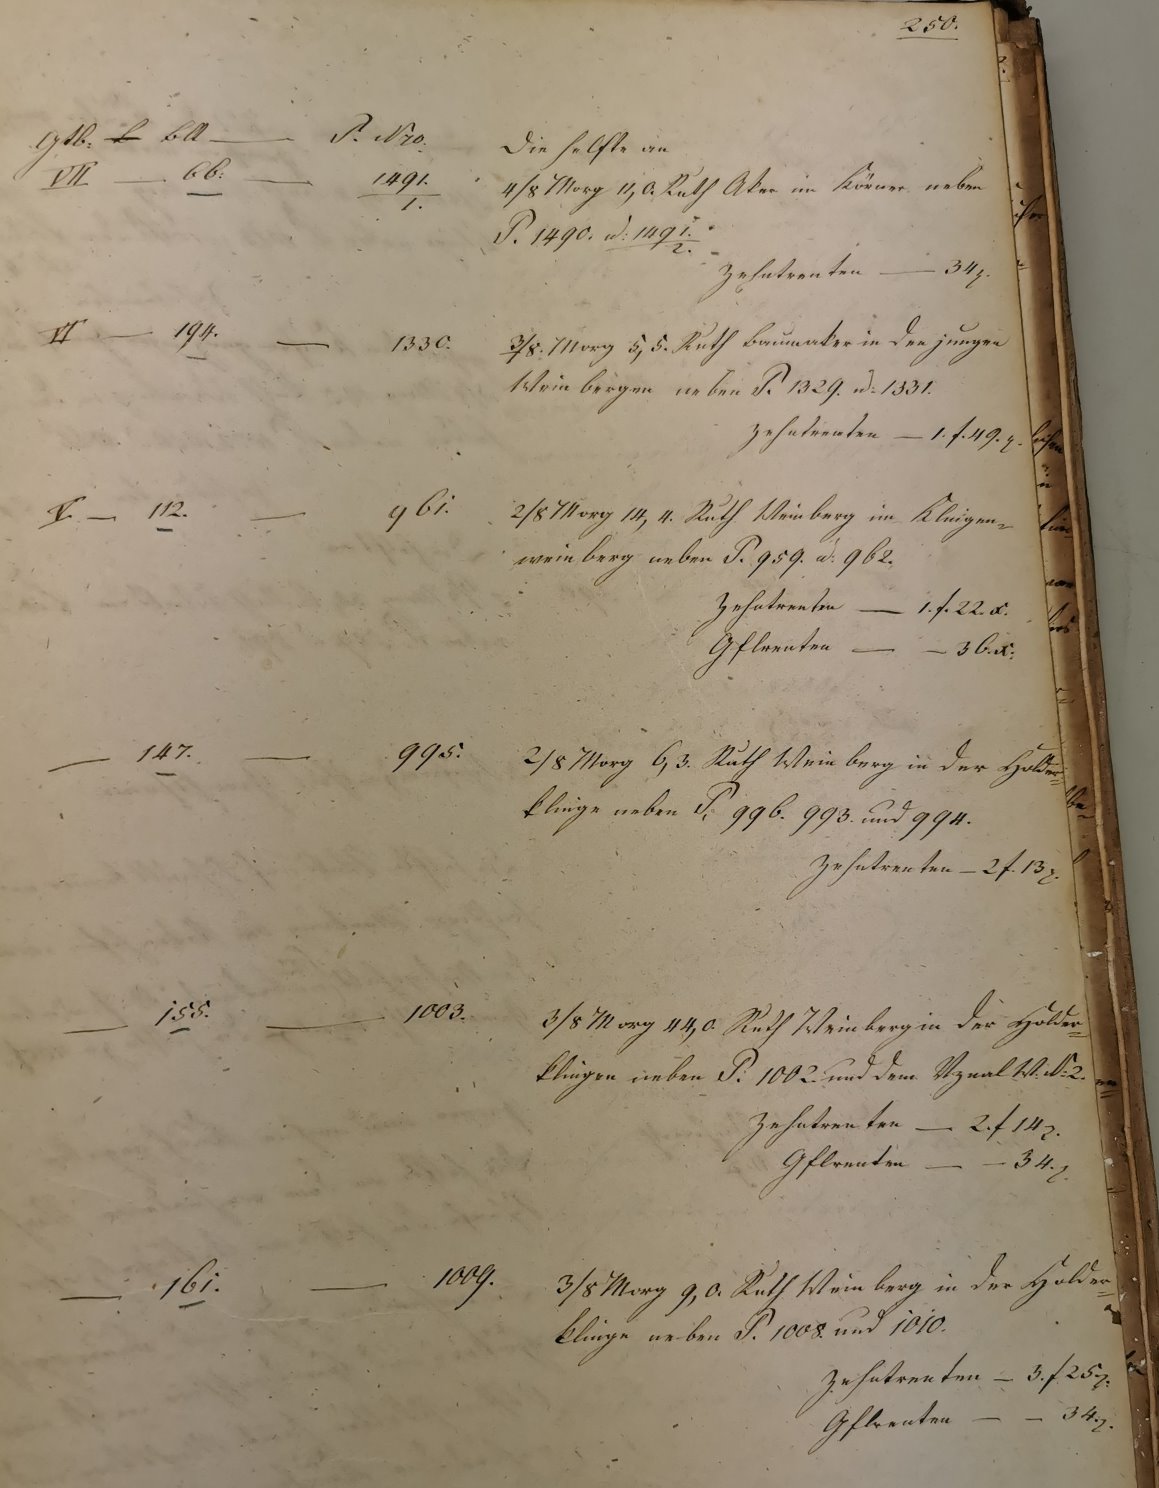 250.
Gtb. Bll — P. Nro. Die helfte an
VII — 66. — 1491. 4/8 Morg 11,0. Ruth Aker im Körner neben
1.
P. 1490. u: 1491.
2.
Zehntrenten — 34 x.
VI — 194. — 1330. 3/8. Morg 5,5. Ruth Baumaker in den jungen
Weinbergen neben P. 1329. u: 1331.
Zehntrenten — 1. f. 49. x.
V. — 112. — 961. 2/8 Morg 14,4. Ruth Weinberg im Klingen=
weinberg neben P. 959. u: 962.
Zehntrenten — 1. f. 22. x.
Gflrenten — — 36. x.
— 147. — 995. 2/8 Morg 6,3. Ruth Weinberg in der Holder=
klinge neben P. 996. 993. und 994.
Zehntrenten — 2 f. 13 x.
— 155. — 1003. 3/8 Morg 44,0 Ruth Weinberg in der Holder=
klingen neben P. 1002. und dem W. N: 2.
Zehntrenten — 2. f 14 x.
Gflrenten — — 34. x.
— 161. — 1009. 3/8 Morg 9,0. Ruth Weinberg in der Holder=
klinge neben P. 1008. und 1010.
Zehntrenten — 3. f 25 x.
Gflrenten — — 34. x.